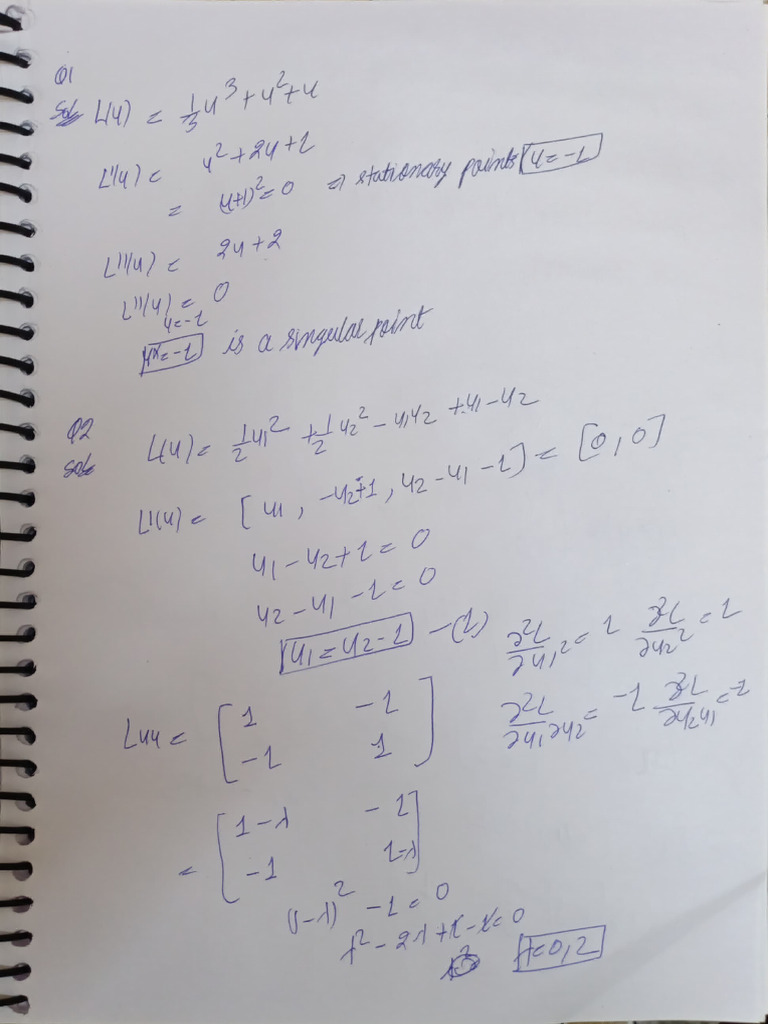 Q1
Sol L(u) = 1/3 u³ + u² + u
L'(u) = u² + 2u + 1
= (u+1)² = 0 ⇒ stationary points u = -1
L''(u) = 2u + 2
L''(u) = 0
u=-1
u* = -1 is a singular point
Q2
Sol L(u) = 1/2 u₁² + 1/2 u₂² - u₁u₂ + u₁ - u₂
L'(u) = [u₁, -u₂+1, u₂ - u₁ - 1] = [0, 0]
u₁ - u₂ + 1 = 0
u₂ - u₁ - 1 = 0
u₁ = u₂ - 1 - (1) ∂²L/∂u₁² = 1 ∂²L/∂u₂² = 1
Luu = [1 -1 ∂²L/∂u₁∂u₂ = -1 ∂²L/∂u₂u₁ = -1
-1 1]
= [1-λ -1
-1 1-λ]
(1-λ)² - 1 = 0
λ² - 2λ + 1 - 1 = 0
λ = 0, 2